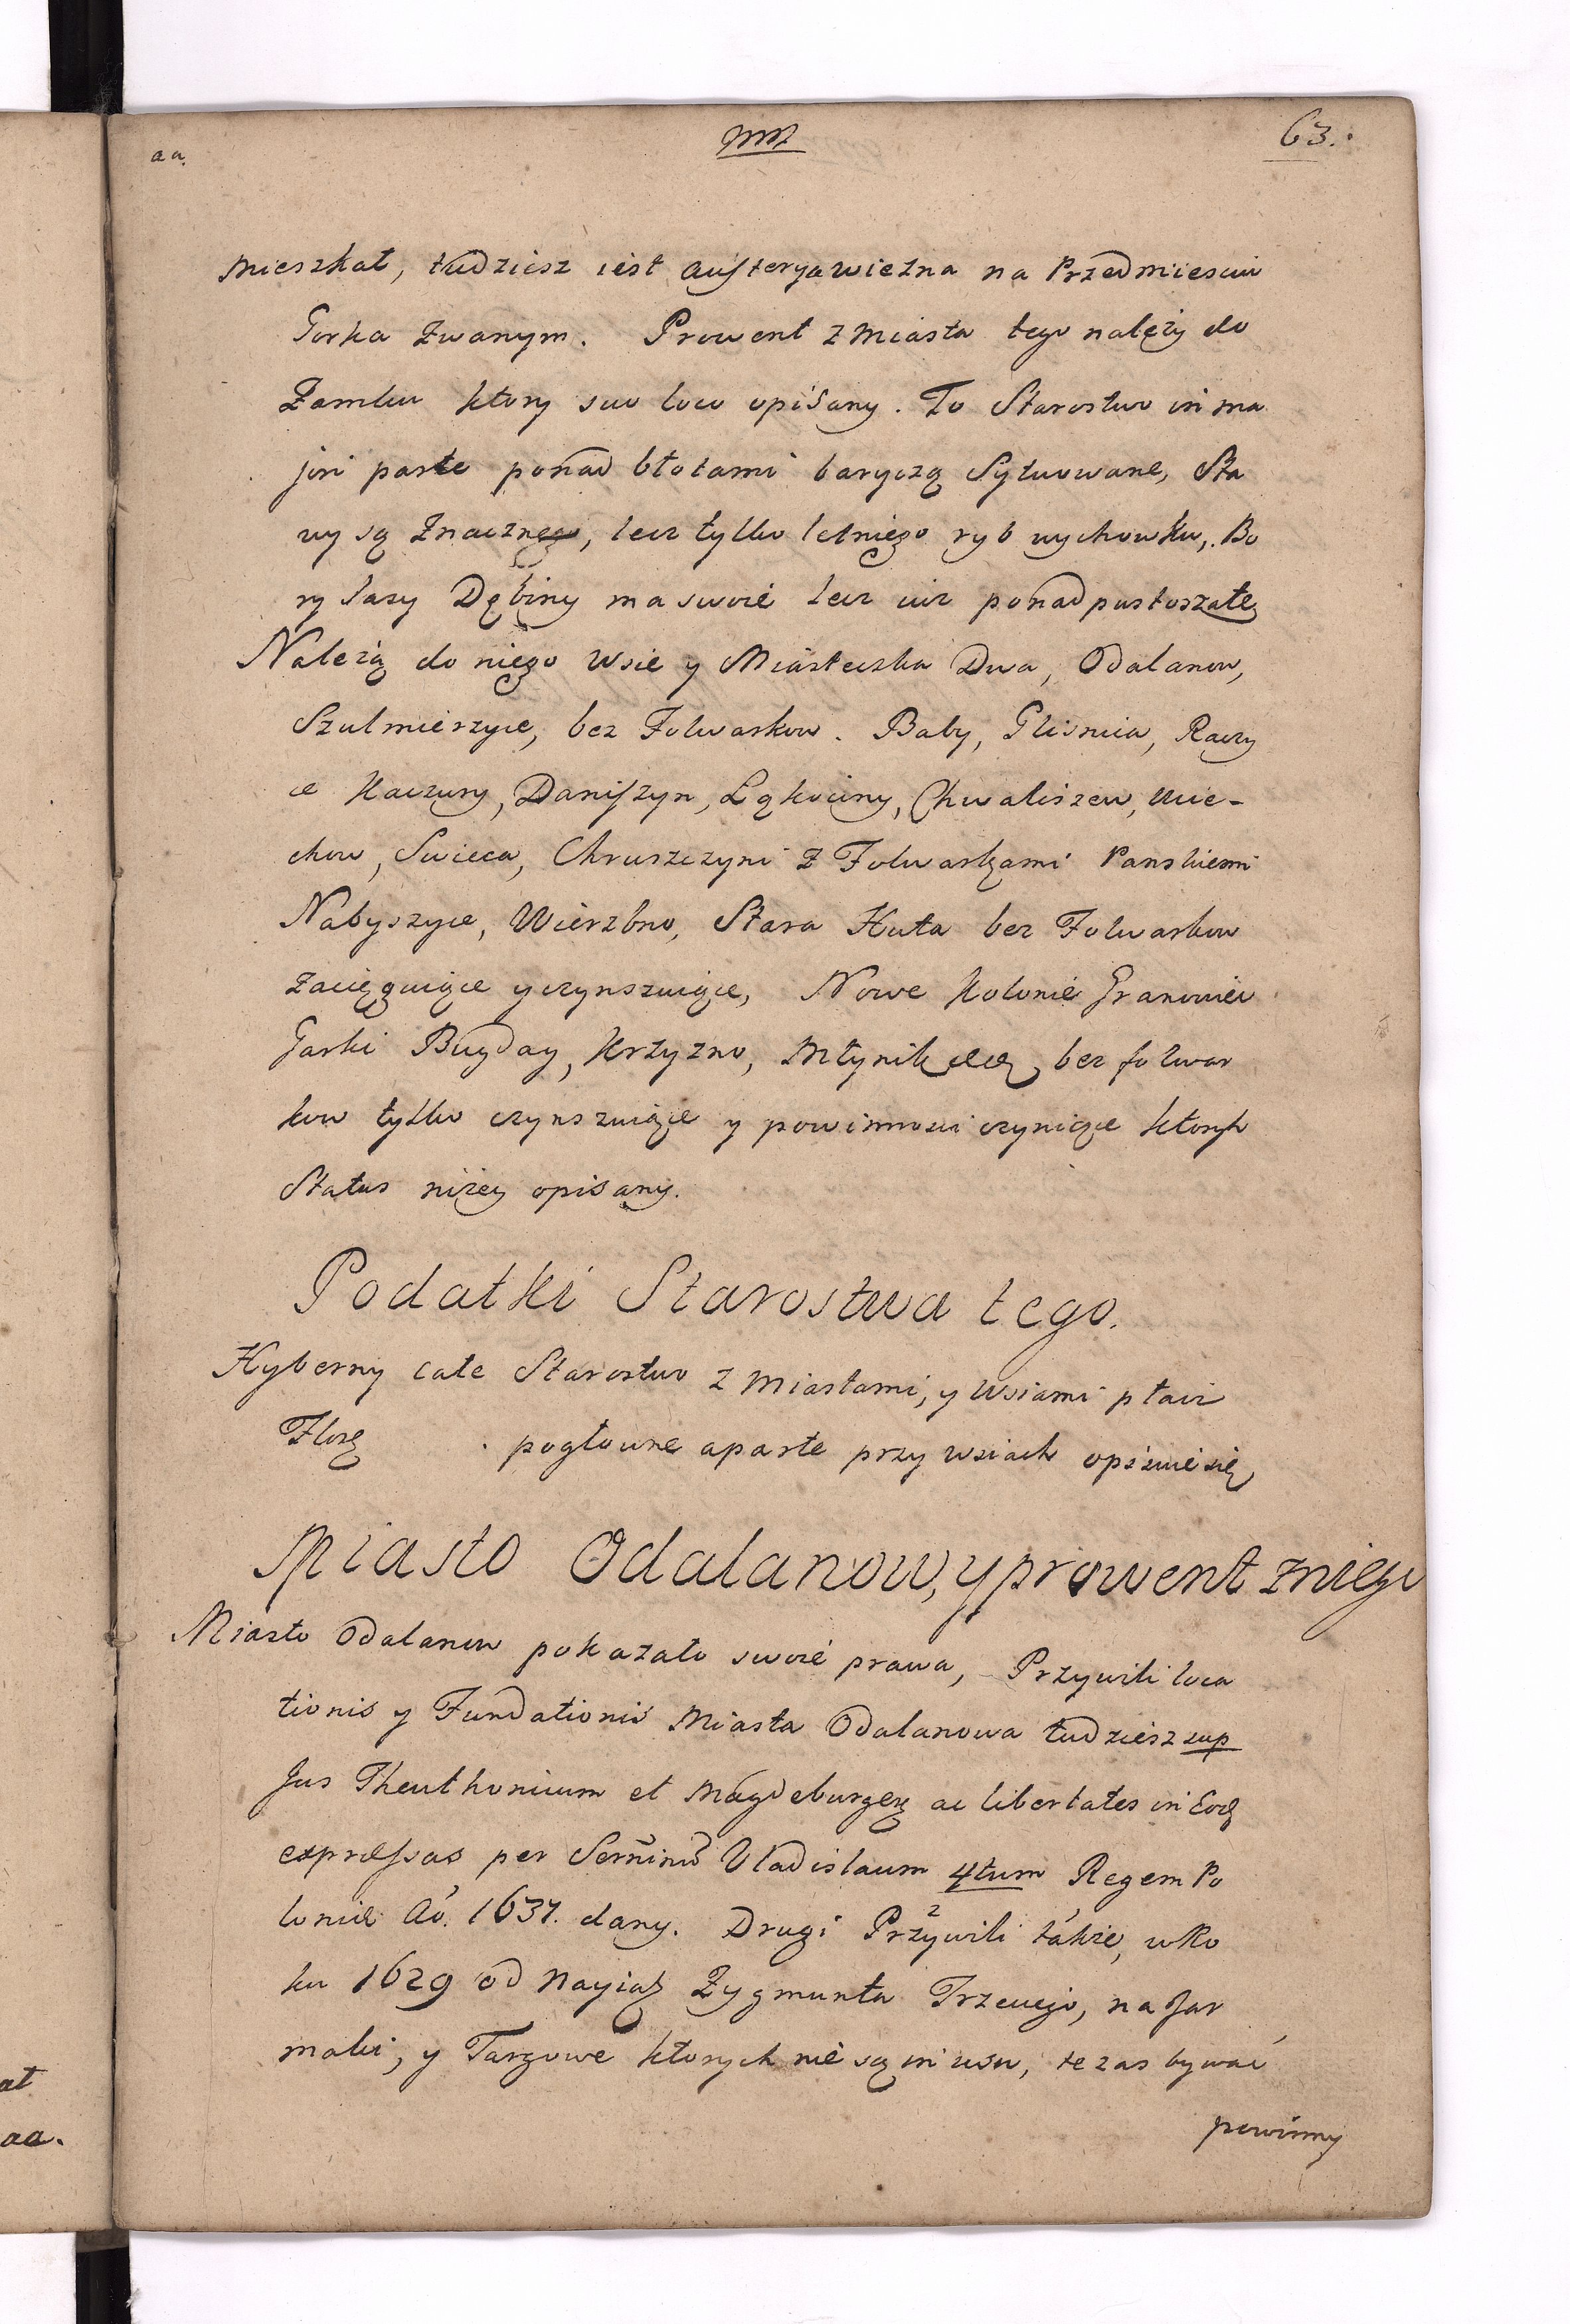 aa.
63.
mieszkał, tudziesz iest austerya wiezna na Przedmiesciu
Gorka zwanym. Prowent z miasta tego należy do
Zamku ktory suo loco opisany. To Starostwo in ma
jori parte ponad błotami baryczą Sytuowane, Sta
wy są Znaczne, lecz tylko letniego ryb wychowku, Bo
ry lasy Dębiny ma swoie lecz iuz ponadpustoszałe
Należą do niego wsie y Miasteczka Dwa, Odalanow,
Szulmierzyce, bez Folwarkow. Baby, Glisnica, Raczy
ce Kaczury, Daniszyn, Łąkociny, Chwaliszew, Uie-
chow, Swieca, Chruszczyni z Folwarkami Panskiemi
Nabyszyce, Wierzbno, Stara Huta bez Folwarkow
zacięguiące y czynszuiące, Nowe Kolonie Granowiec
Garki Bugday, Krzyzno, Młynik etc bez folwar
kow tylko czynszuiące y powinnosci czyniące ktorych
Status niżey opisany.
Podatki Starostwa tego.
Hyberny całe Starostwo z miastami, y wsiami płaci
Złł. pogłowne aparte przy wsiach opisuie się
Miasto Odalanow, y prowent z niego
Miasto Odalanow pokazało swoie prawa, Przywili loca
tionis y Fundationis Miasta Odalanowa tudziesz sup
Jus Theuthonicum et Magdeburgen ac libertates in Eod
expressas per Sernnimu Vladislaum 4tum Regem Po
loniæ Ao. 1637. dany. Drugi Przywili także, w Ro
ku 1629 od Nayias Zygmunta Trzeciego, na Jar
maki, y Targowe ktorych nie są in usu, te zas bywać
powinny